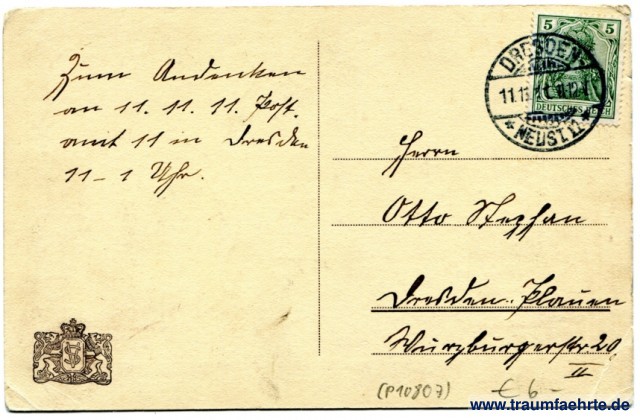 Zum Andenken
an 11. 11. 11. Post-
amt 11 in Dresden
11 – 1 Uhr.
5 5
DEUTSCHES REICH
DRESDEN-
11.11.11. 11-12
* NEUST. 11. *
Herrn
Otto Stephan
Dresden-Plauen
Würzburgerstr 20
II
(P10807)
€ 6-
www.traumfaehrte.de